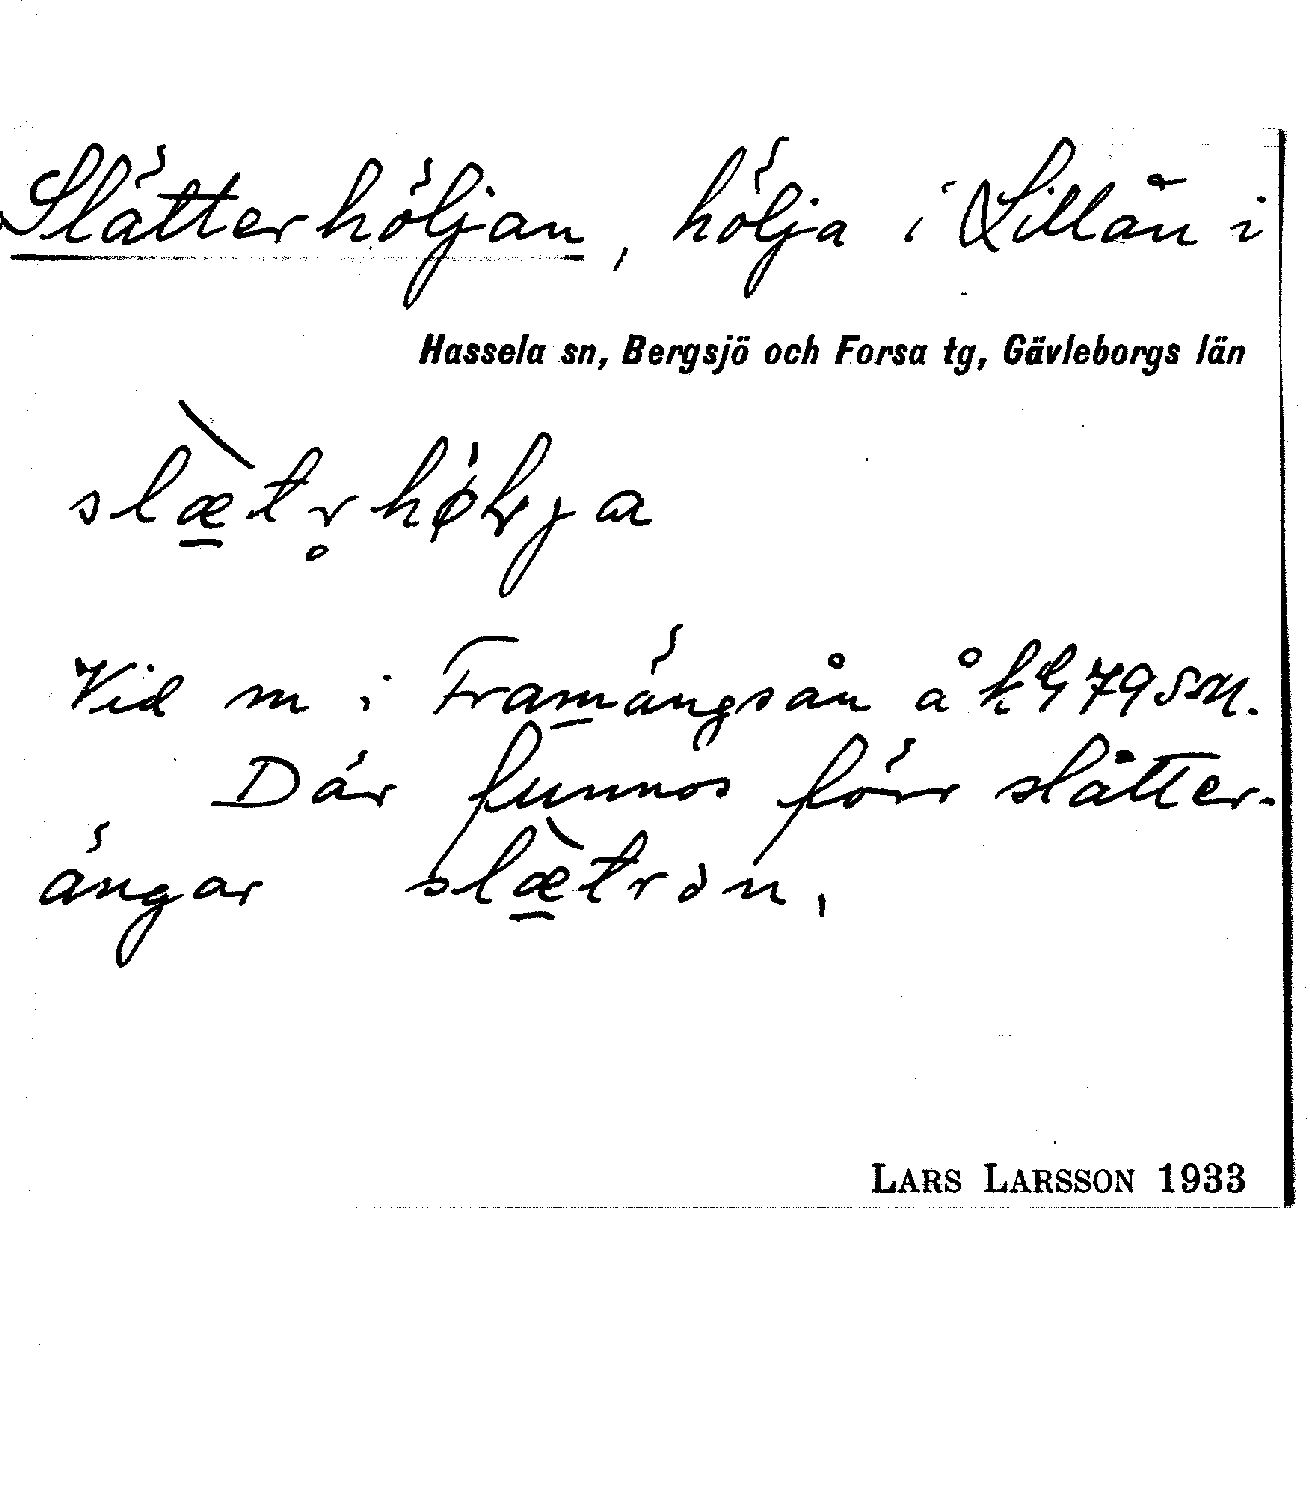 Slätterhöljan, hölja i Lillån i
Hassela sn, Bergsjö och Forsa tg, Gävleborgs län
Vid m i Framängsån å
Där funnos förr slåtter-
ängar slætrən.
LARS LARSSON 1933